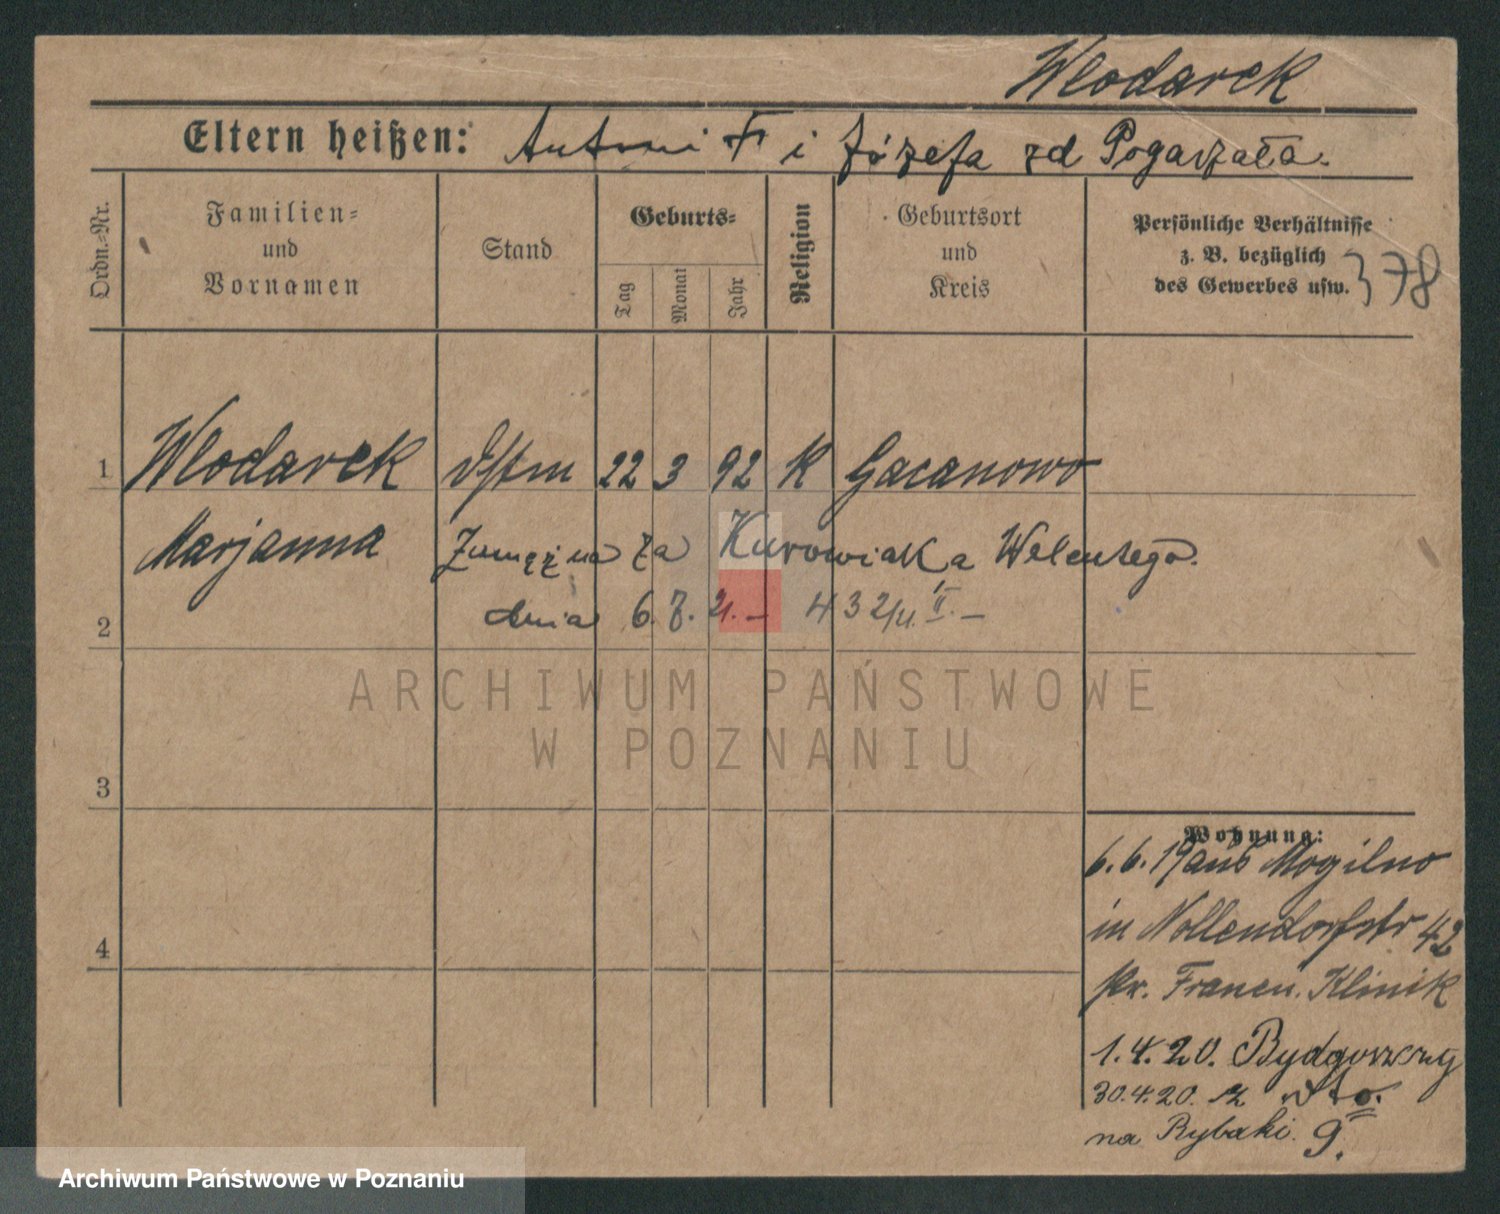 Wlodarek
Eltern heißen: Antoni F i Józefa zd Pogarzała.
Ordn.-Nr.
Familien- und Vornamen
Stand
Geburts-
Tag
Monat
Jahr
Religion
Geburtsort und Kreis
Persönliche Verhältnisse
z. B. bezüglich
des Gewerbes usw.
378
1 Wlodarek 22 3 92 K Gacanowo
Marjanna Zamężna za Kurowiaka Welentego.
2 dnia 6.7.21.- 432/21. II.-
ARCHIWUM PAŃSTWOWE
W POZNANIU
3
Wohnung:
6.6.19 aus Mogilno
4 in Nollendorfstr 42
Klinik
1.4.20. Bydgoszczy
30.4.20. z dto.
na Rybaki. 9.
Archiwum Państwowe w Poznaniu